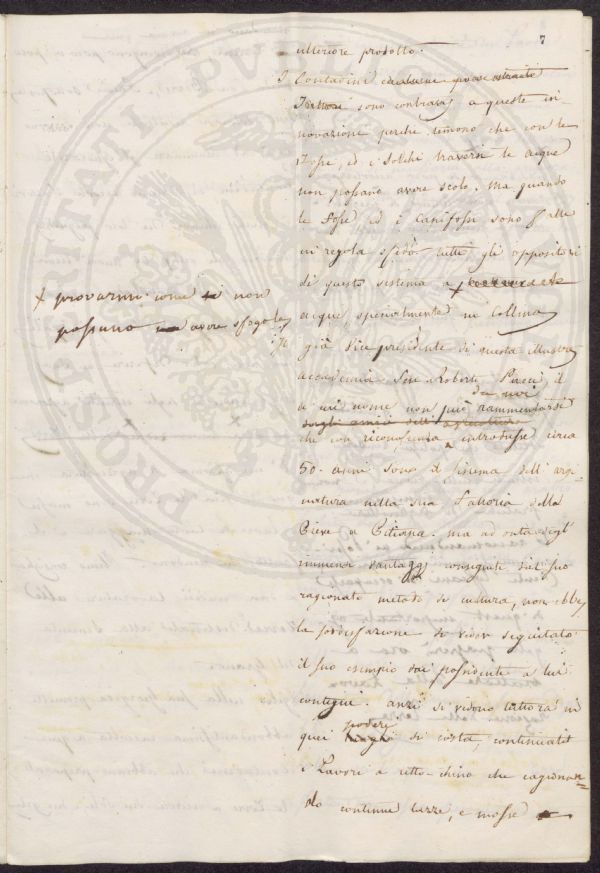 7
ulteriore prodotto.
I Contadini
sono contrarj a queste in-
novazione perche temono che con le
Fosse, ed i Solchi traversi le acque
non possano avere scolo, ma quando
le Fosse ed i Capifossi sono fatte
in regola sfido tutti gli oppositori
di questo sistema a +
+ provarmi come non
possano avere sfogo le
acque, specialmente in Collina
già Vice presidente di questa illustre
accademia Roberto il
di cui nome non può rammentarsi
da noi
sugli amici dell' agricoltura
che con riconoscenza introdusse circa
50. anni sono il sistema dell' argi-
natura nella sua Fattoria della
Pieve a Pitiana. ma ad onta degl'
immensi vantaggi conseguiti dal suo
ragionato metodo di cultura, non ebbe
la sodisfazione di veder seguitato
il suo esempio dai possidenti a lui
contigui. anzi si vedono tuttora in
poderi
quei luoghi di costa, continuati
i Lavori a ritto-chino che cagionan-
do continue e mosse